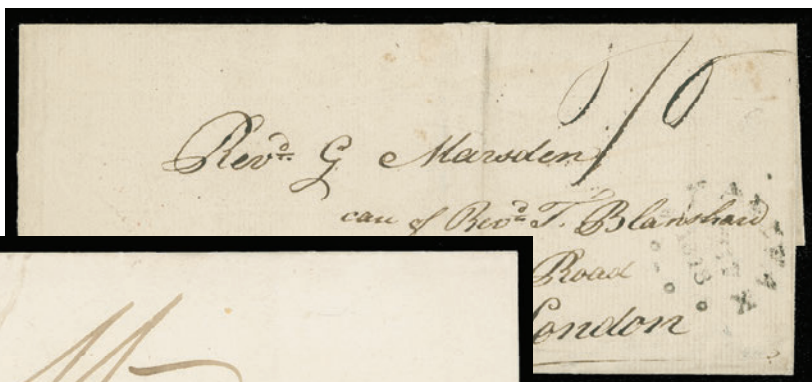 Revd. G Marsden
care of Revd. T. Blanshard
Road
London